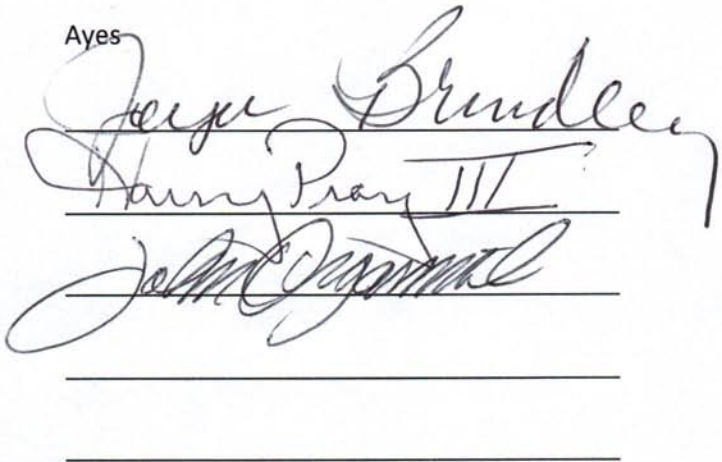 Ayes
Brindley
Harry Pray III
John